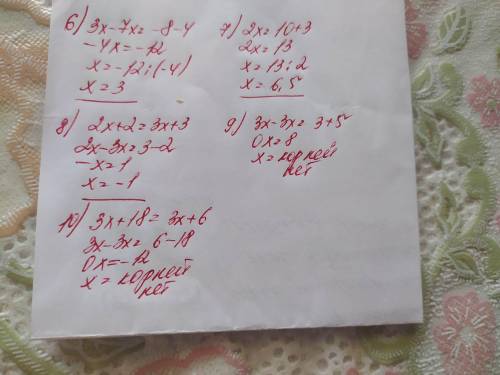 6) 3x-7x= -8-4
-4x=-12
x=-12:(-4)
x=3
7) 2x=10+3
2x=13
x=13:2
x=6,5
8) 2x+2=3x+3
2x-3x=3-2
-x=1
x=-1
9) 3x-3x= 3+5
0x=8
x=корней
нет
10) 3x+18=3x+6
3x-3x= 6-18
0x=-12
x=корней
нет